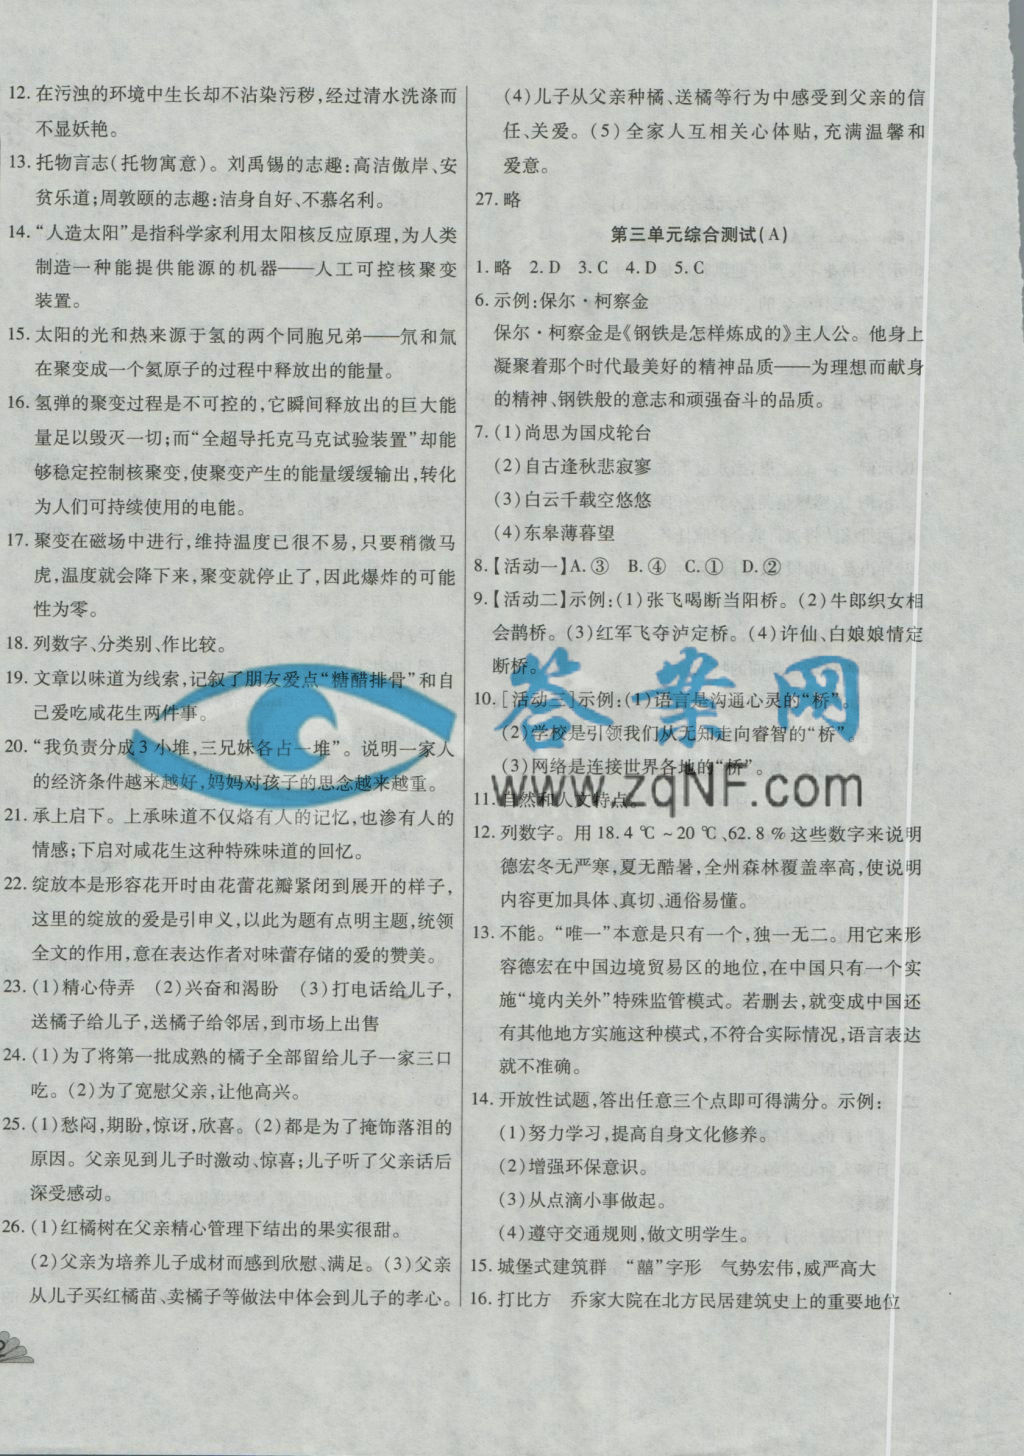 12. 在污浊的环境中生长却不沾染污秽,经过清水洗涤而
不显妖艳。
13. 托物言志(托物寓意)。刘禹锡的志趣:高洁傲岸、安
贫乐道;周敦颐的志趣:洁身自好、不慕名利。
14. “人造太阳”是指科学家利用太阳核反应原理,为人类
制造一种能提供能源的机器——人工可控核聚变
装置。
15. 太阳的光和热来源于氢的两个同胞兄弟——氘和氚
在聚变成一个氦原子的过程中释放出的能量。
16. 氢弹的聚变过程是不可控的,它瞬间释放出的巨大能
量足以毁灭一切;而“全超导托克马克试验装置”却能
够稳定控制核聚变,使聚变产生的能量缓缓输出,转化
为人们可持续使用的电能。
17. 聚变在磁场中进行,维持温度已很不易,只要稍微马
虎,温度就会降下来,聚变就停止了,因此爆炸的可能
性为零。
18. 列数字、分类别、作比较。
19. 文章以味道为线索,记叙了朋友爱点“糖醋排骨”和自
己爱吃咸花生两件事。
20. “我负责分成3小堆,三兄妹各占一堆”。说明一家人
的经济条件越来越好,妈妈对孩子的思念越来越重。
21. 承上启下。上承味道不仅烙有人的记忆,也渗有人的
情感;下启对咸花生这种特殊味道的回忆。
22. 绽放本是形容花开时由花蕾花瓣紧闭到展开的样子,
这里的绽放的爱是引申义,以此为题有点明主题,统领
全文的作用,意在表达作者对味蕾存储的爱的赞美。
23. (1)精心侍弄 (2)兴奋和渴盼 (3)打电话给儿子,
送橘子给儿子,送橘子给邻居,到市场上出售
24. (1)为了将第一批成熟的橘子全部留给儿子一家三口
吃。(2)为了宽慰父亲,让他高兴。
25. (1)愁闷,期盼,惊讶,欣喜。(2)都是为了掩饰落泪的
原因。父亲见到儿子时激动、惊喜;儿子听了父亲话后
深受感动。
26. (1)红橘树在父亲精心管理下结出的果实很甜。
(2)父亲为培养儿子成材而感到欣慰、满足。(3)父亲
从儿子买红橘苗、卖橘子等做法中体会到儿子的孝心。
(4)儿子从父亲种橘、送橘等行为中感受到父亲的信
任、关爱。(5)全家人互相关心体贴,充满温馨和
爱意。
27. 略
第三单元综合测试(A)
1. 略 2. D 3. C 4. D 5. C
6. 示例:保尔·柯察金
保尔·柯察金是《钢铁是怎样炼成的》主人公。他身上
凝聚着那个时代最美好的精神品质——为理想而献身
的精神、钢铁般的意志和顽强奋斗的品质。
7. (1)尚思为国戍轮台
(2)自古逢秋悲寂寥
(3)白云千载空悠悠
(4)东皋薄暮望
8. 【活动一】A. ③ B. ④ C. ① D. ②
9. 【活动二】示例:(1)张飞喝断当阳桥。(2)牛郎织女相
会鹊桥。(3)红军飞夺泸定桥。(4)许仙、白娘娘情定
断桥。
10. [活动三]示例:(1)语言是沟通心灵的“桥”。
(2)学校是引领我们从无知走向睿智的“桥”。
(3)网络是连接世界各地的“桥”。
11. 自然和人文特点。
12. 列数字。用18.4℃~20℃、62.8%这些数字来说明
德宏冬无严寒,夏无酷暑,全州森林覆盖率高,使说明
内容更加具体、真切、通俗易懂。
13. 不能。“唯一”本意是只有一个,独一无二。用它来形
容德宏在中国边境贸易区的地位,在中国只有一个实
施“境内关外”特殊监管模式。若删去,就变成中国还
有其他地方实施这种模式,不符合实际情况,语言表达
就不准确。
14. 开放性试题,答出任意三个点即可得满分。示例:
(1)努力学习,提高自身文化修养。
(2)增强环保意识。
(3)从点滴小事做起。
(4)遵守交通规则,做文明学生。
15. 城堡式建筑群 “囍”字形 气势宏伟,威严高大
16. 打比方 乔家大院在北方民居建筑史上的重要地位
答案网
www.zqNF.com